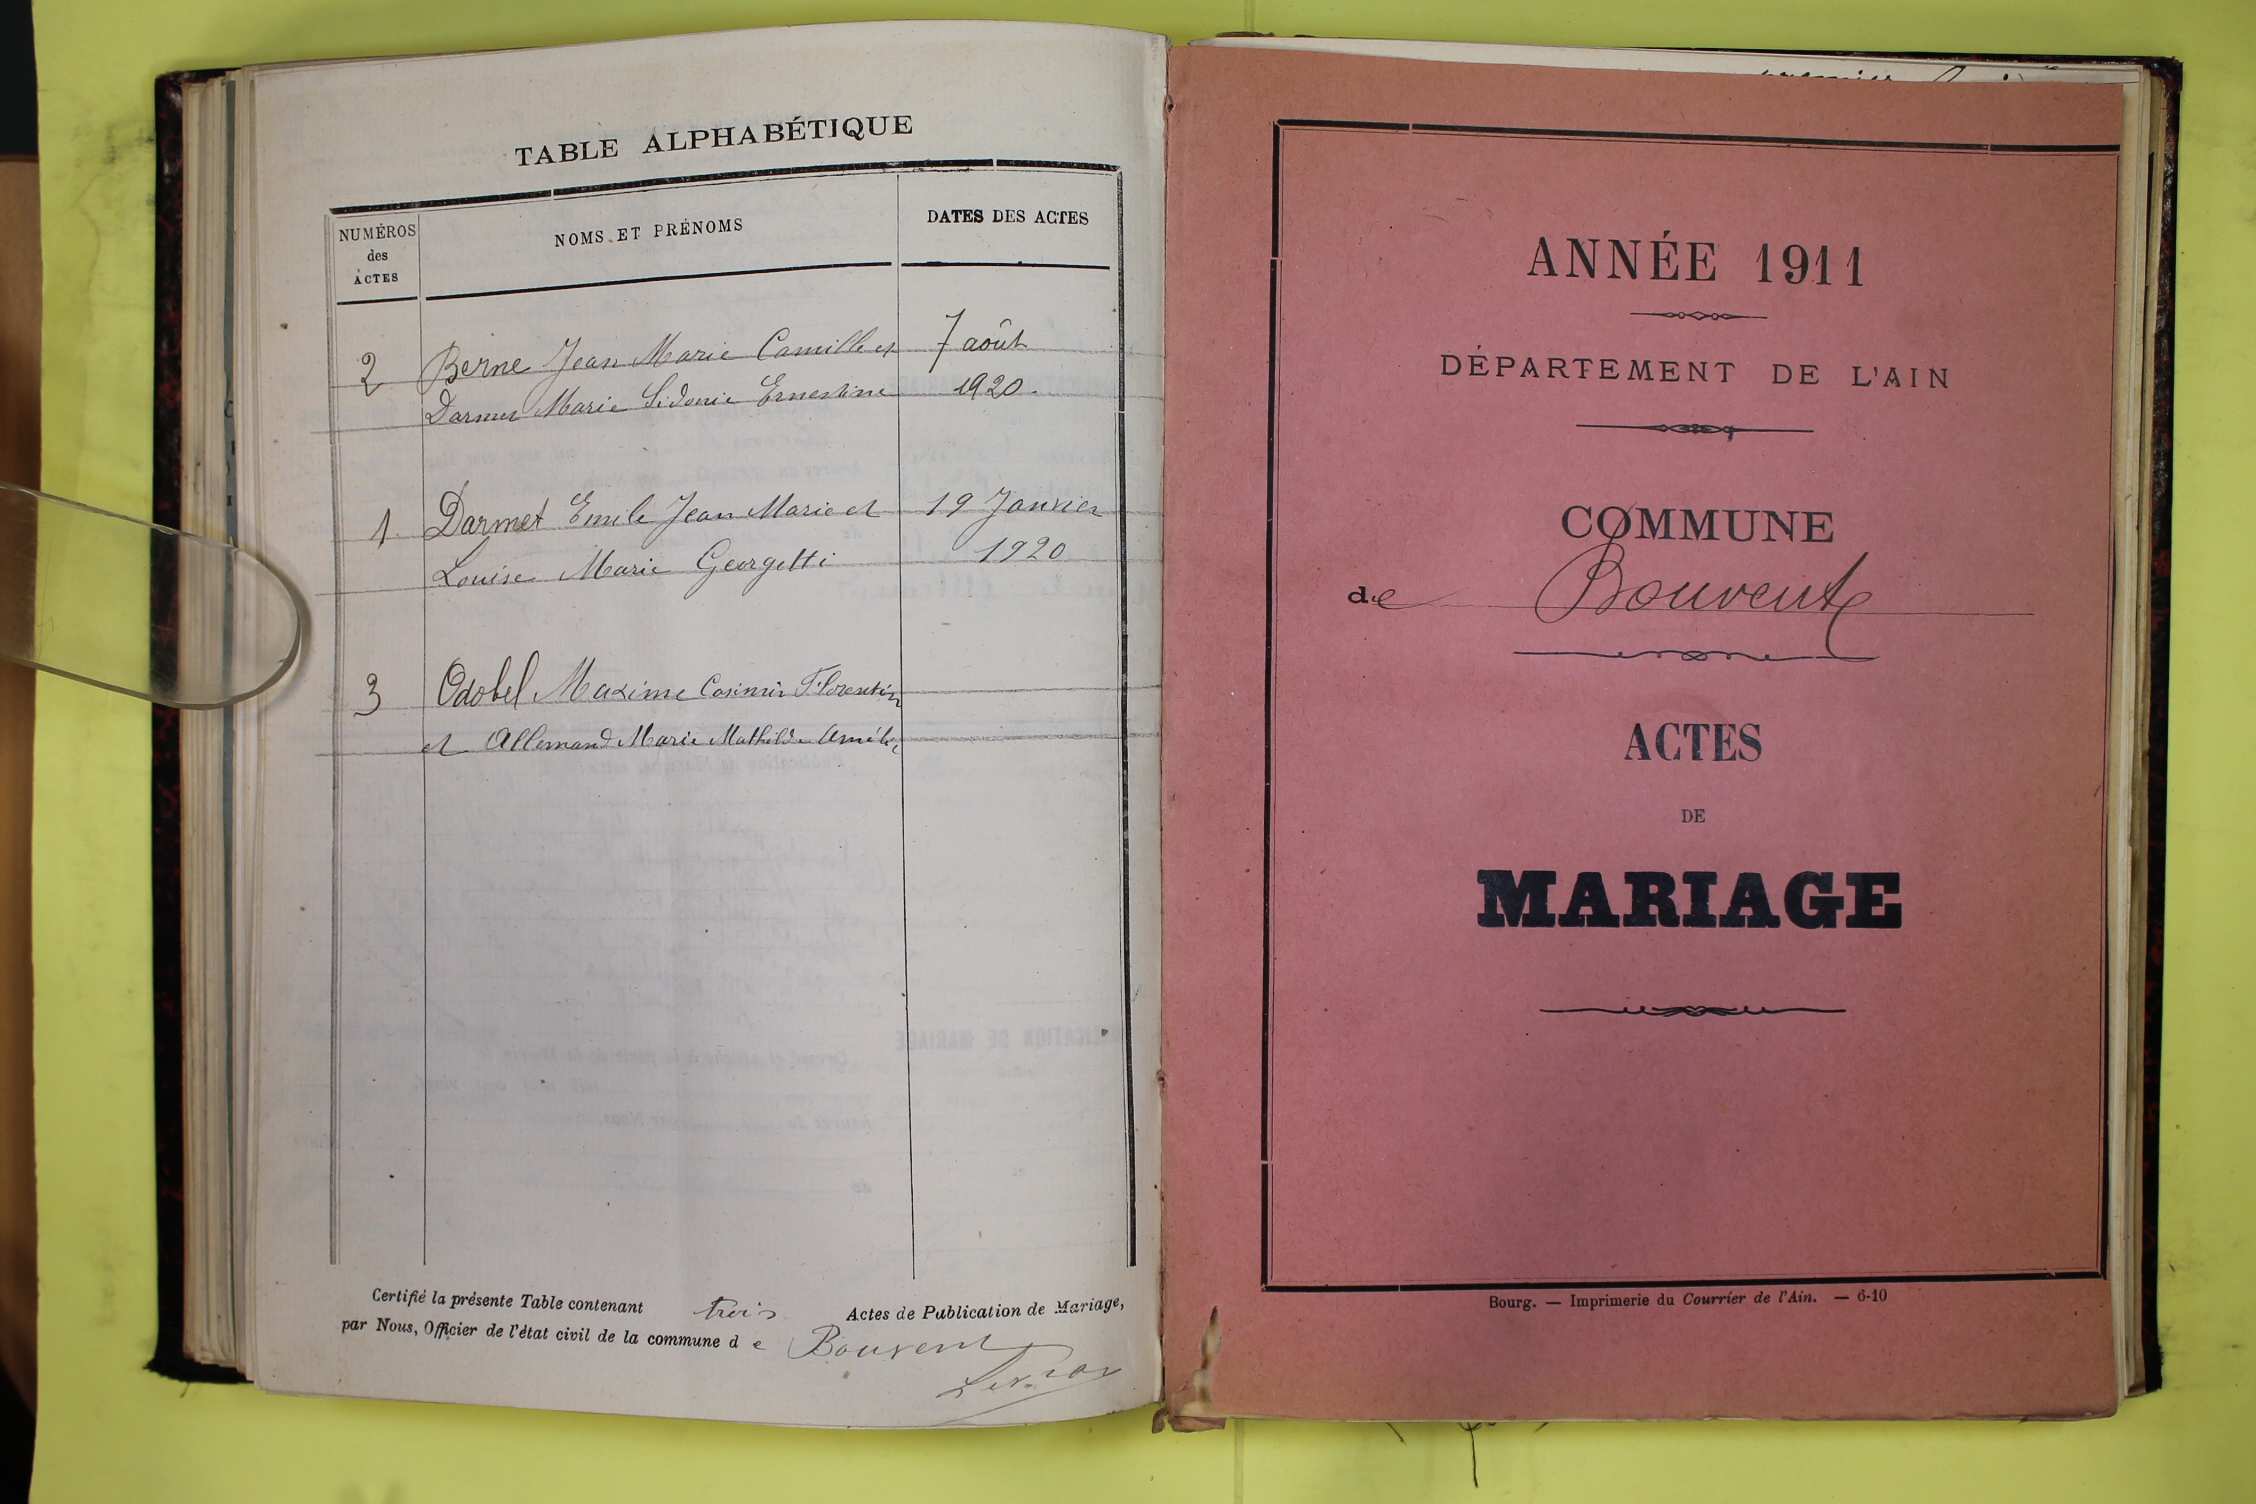 TABLE ALPHABÉTIQUE
NUMÉROS
des
ACTES
NOMS ET PRÉNOMS
DATES DES ACTES
2 Berne Jean Marie Camille et 7 août
Darmet Marie Sidonie Ernestine 1920.
1. Darmet Emile Jean Marie et 19 Janvier
Louise Marie Georgetti 1920
3 Odobel Maxime Casimir Florentin
et Allemand Marie Mathilde Amélie
Certifié la présente Table contenant trois Actes de Publication de Mariage,
par Nous, Officier de l'état civil de la commune d e Bouvent
ANNÉE 1911
DÉPARTEMENT DE L'AIN
COMMUNE
de Bouvent
ACTES
DE
MARIAGE
Bourg. — Imprimerie du Courrier de l'Ain. — 6-10